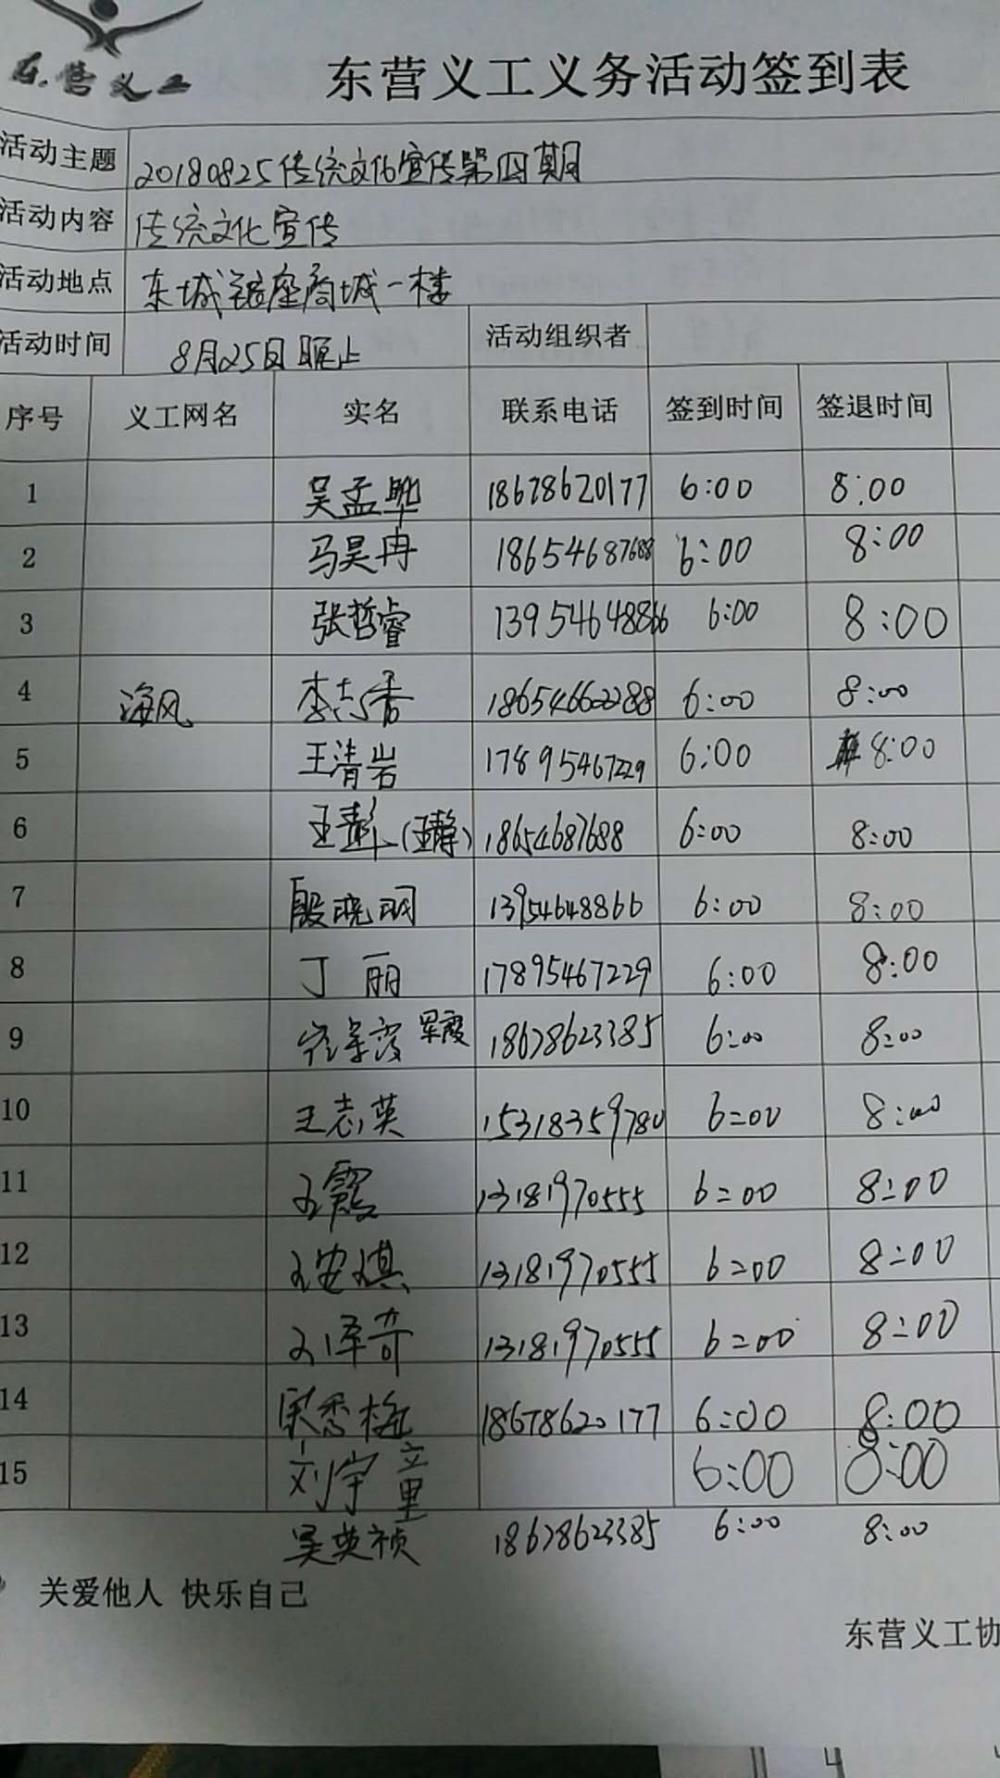 东营义工
东营义工义务活动签到表
活动主题 20180825传统文化宣传第四期
活动内容 传统文化宣传
活动地点 东城银座商城一楼
活动时间 8月25日晚上 活动组织者
序号 义工网名 实名 联系电话 签到时间 签退时间
1 吴孟 18678620177 6:00 8:00
2 马昊冉 18654687688 6:00 8:00
3 张哲睿 13954648866 6:00 8:00
4 海风 李志香 18654662288 6:00 8:00
5 王清岩 17895467229 6:00 8:00
6 王静(王静) 18654687688 6:00 8:00
7 殷晓明 13954648866 6:00 8:00
8 丁丽 17895467229 6:00 8:00
9 军霞 18678623385 6:00 8:00
10 王志英 15318359780 6:00 8:00
11 王霞 13181970555 6:00 8:00
12 刘安琪 13181970555 6:00 8:00
13 刘泽奇 13181970555 6:00 8:00
14 梅 18678620177 6:00 8:00
15 刘宇童 6:00 8:00
吴英祯 18678623385 6:00 8:00
关爱他人 快乐自己
东营义工协